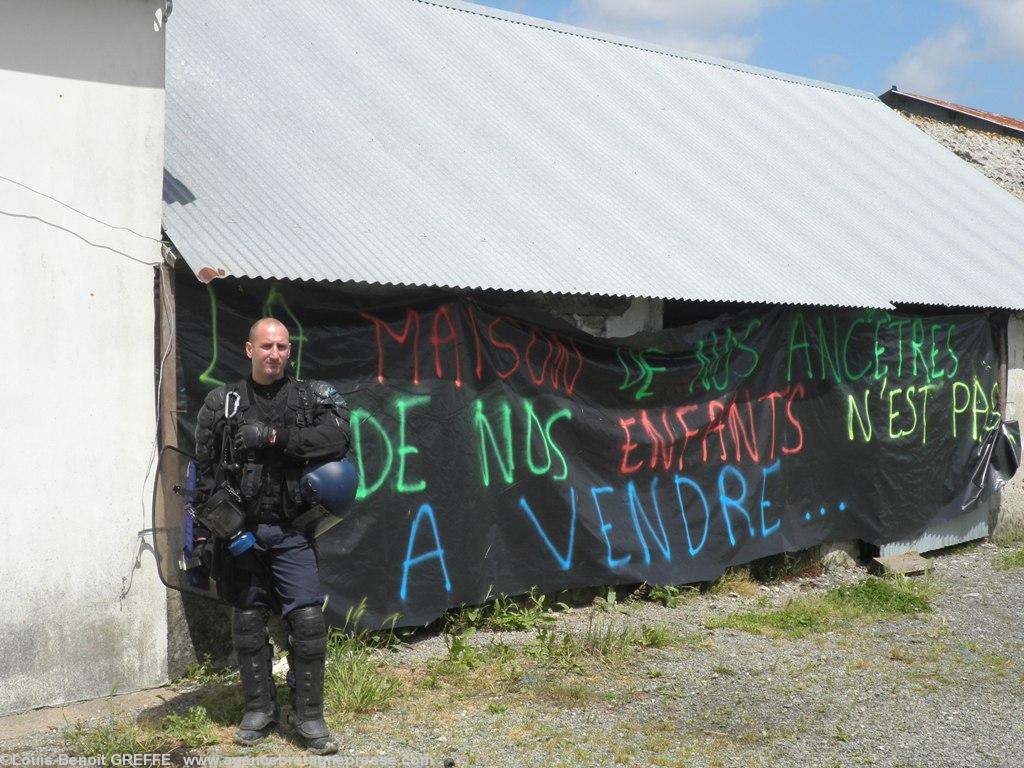 LA MAISON DE NOS ANCÊTRES
DE NOS ENFANTS N'EST PAS
A VENDRE...
©Louis-Benoit GREFFE www.agencebretagnepresse.com